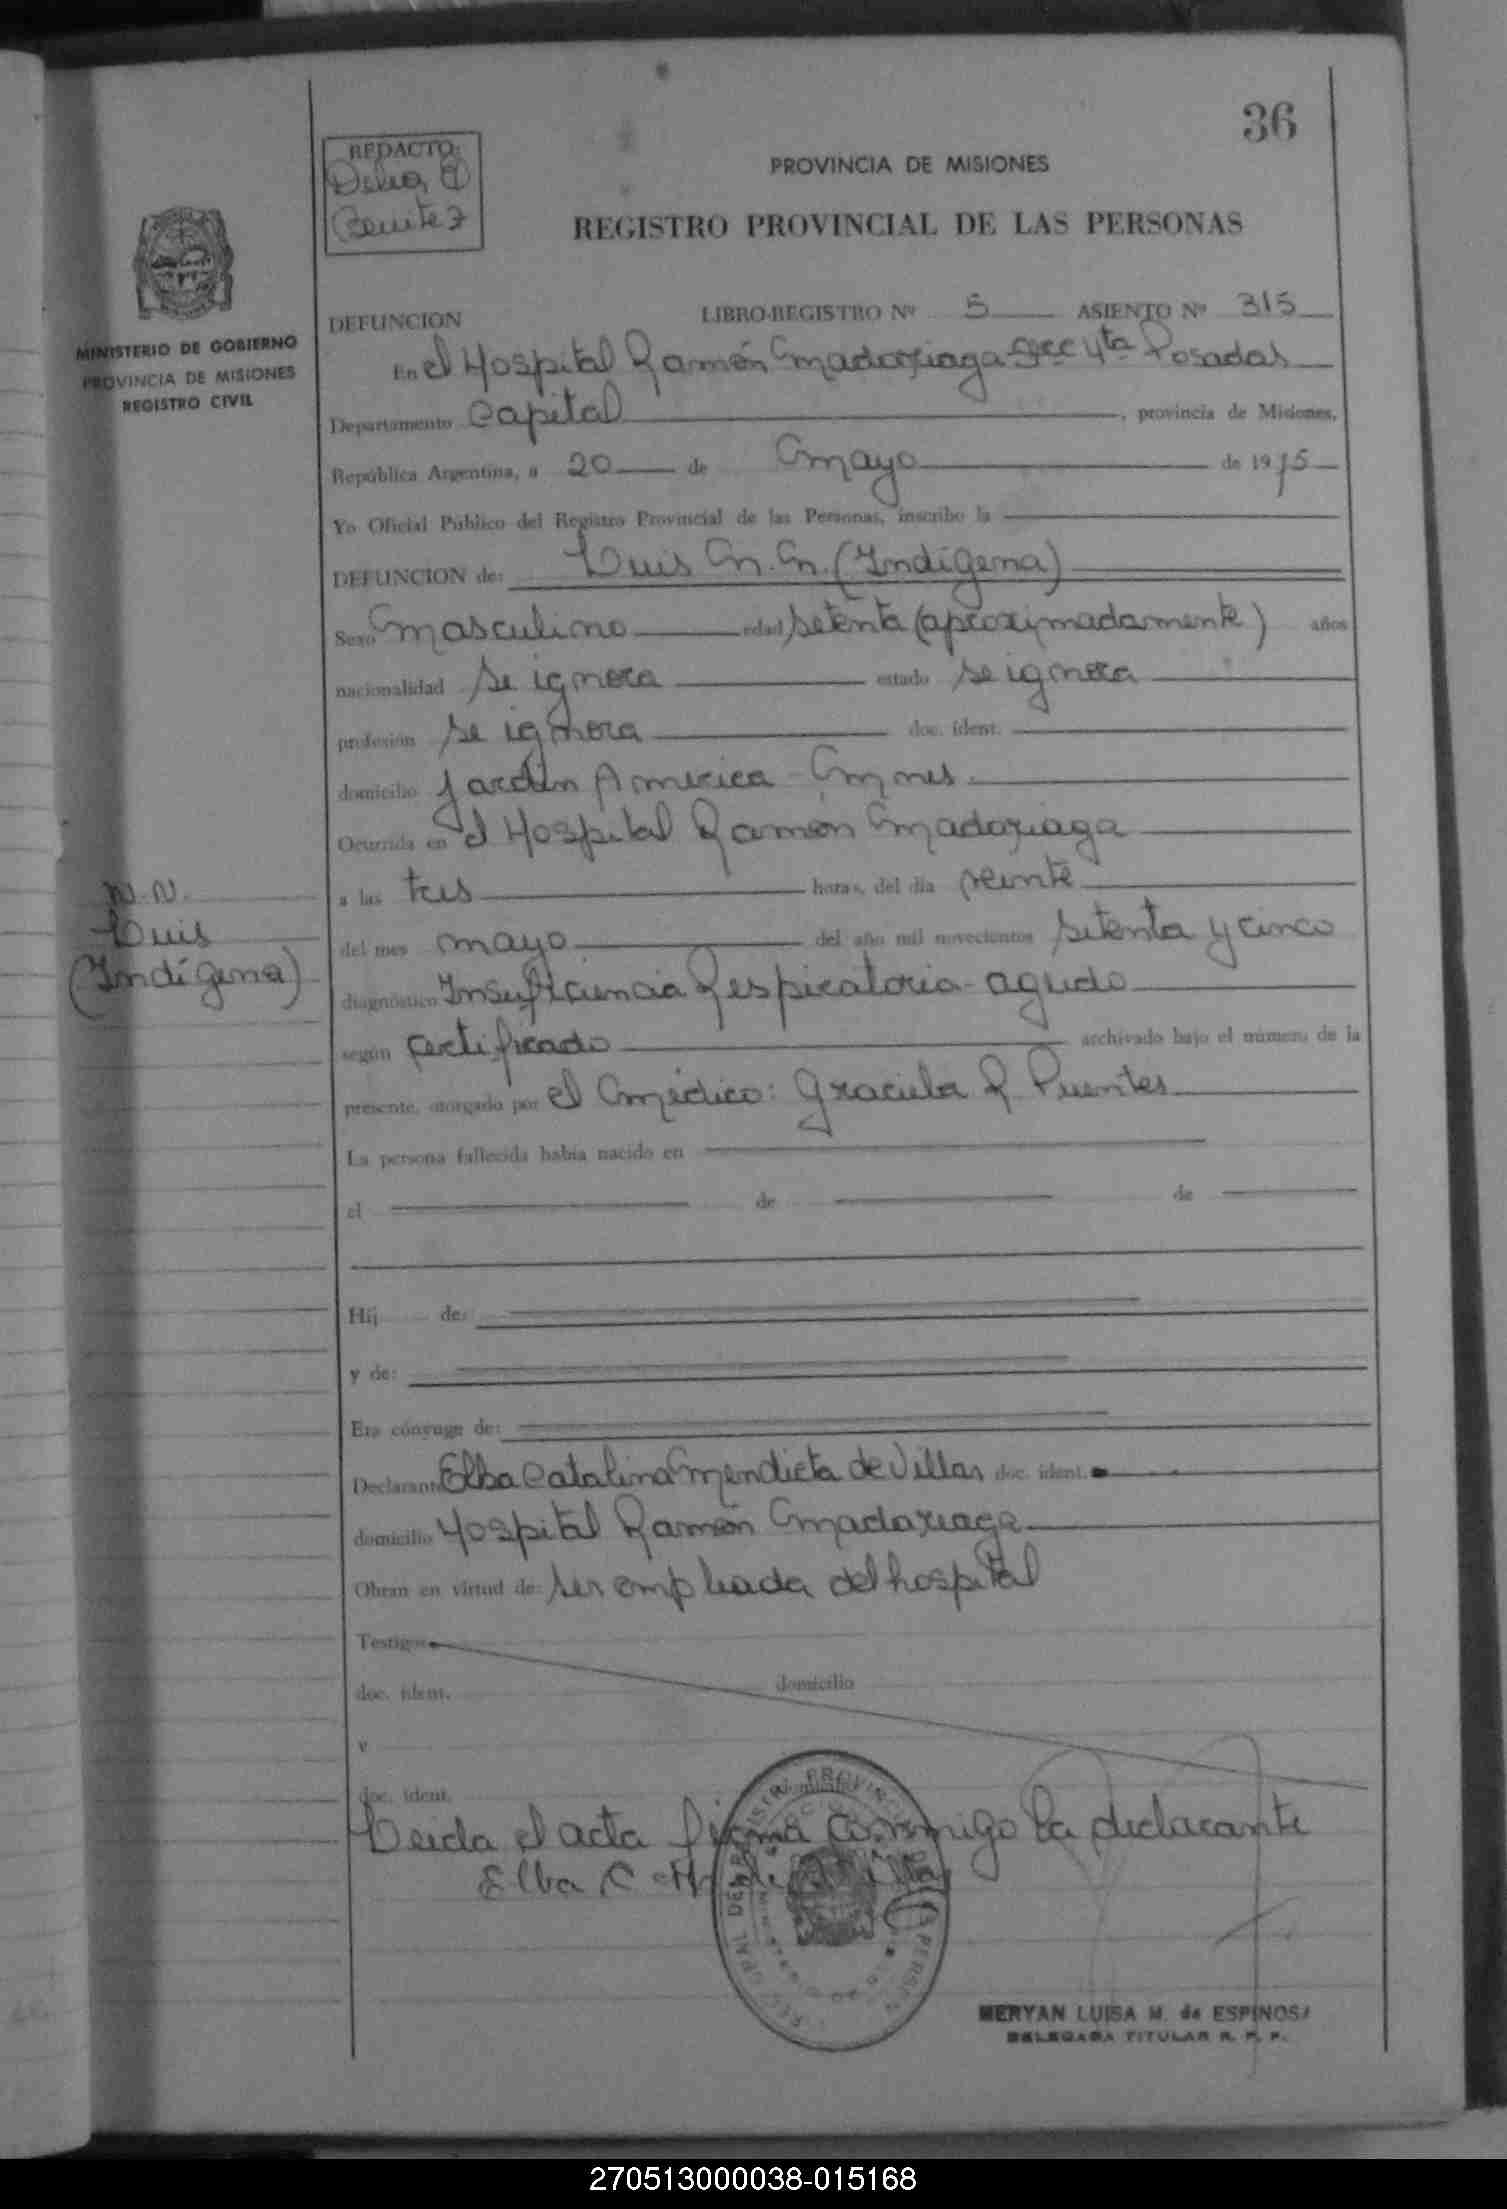 36
REDACTO:
Delia E
Benitez
PROVINCIA DE MISIONES
REGISTRO PROVINCIAL DE LAS PERSONAS
MINISTERIO DE GOBIERNO
PROVINCIA DE MISIONES
REGISTRO CIVIL
DEFUNCION LIBRO-REGISTRO Nº 5 ASIENTO Nº 315
En el Hospital Ramón Madariaga Secc 4ta Posadas
Departamento Capital, provincia de Misiones,
República Argentina, a 20 de mayo de 1975
Yo Oficial Público del Registro Provincial de las Personas, inscribo la
DEFUNCION de: Luis N.N. (Indígena)
Sexo masculino edad setenta (aproximadamente) años
nacionalidad se ignora estado se ignora
profesión se ignora doc. ident.
domicilio Jardín America - Mnes.
Ocurrida en el Hospital Ramón Madariaga
a las tres horas, del día veinte
del mes mayo del año mil novecientos setenta y cinco
diagnóstico Insuficiencia Respiratoria - agudo
según certificado archivado bajo el número de la
presente, otorgado por el médico: Graciela R. Puentes
La persona fallecida había nacido en
el de de
Hij de:
y de:
Era cónyuge de:
Declarante Elba Catalina Mendieta de Villar doc. ident.
domicilio Hospital Ramón Madariaga
Obran en virtud de: ser empleada del hospital
Testigos
doc. ident. domicilio
y
doc. ident.
Leida el acta firma conmigo la declarante
Elba C.
N.N.
Luis
(Indígena)
MERYAN LUISA M. de ESPINOSA
DELEGADA TITULAR R. P. P.
270513000038-015168